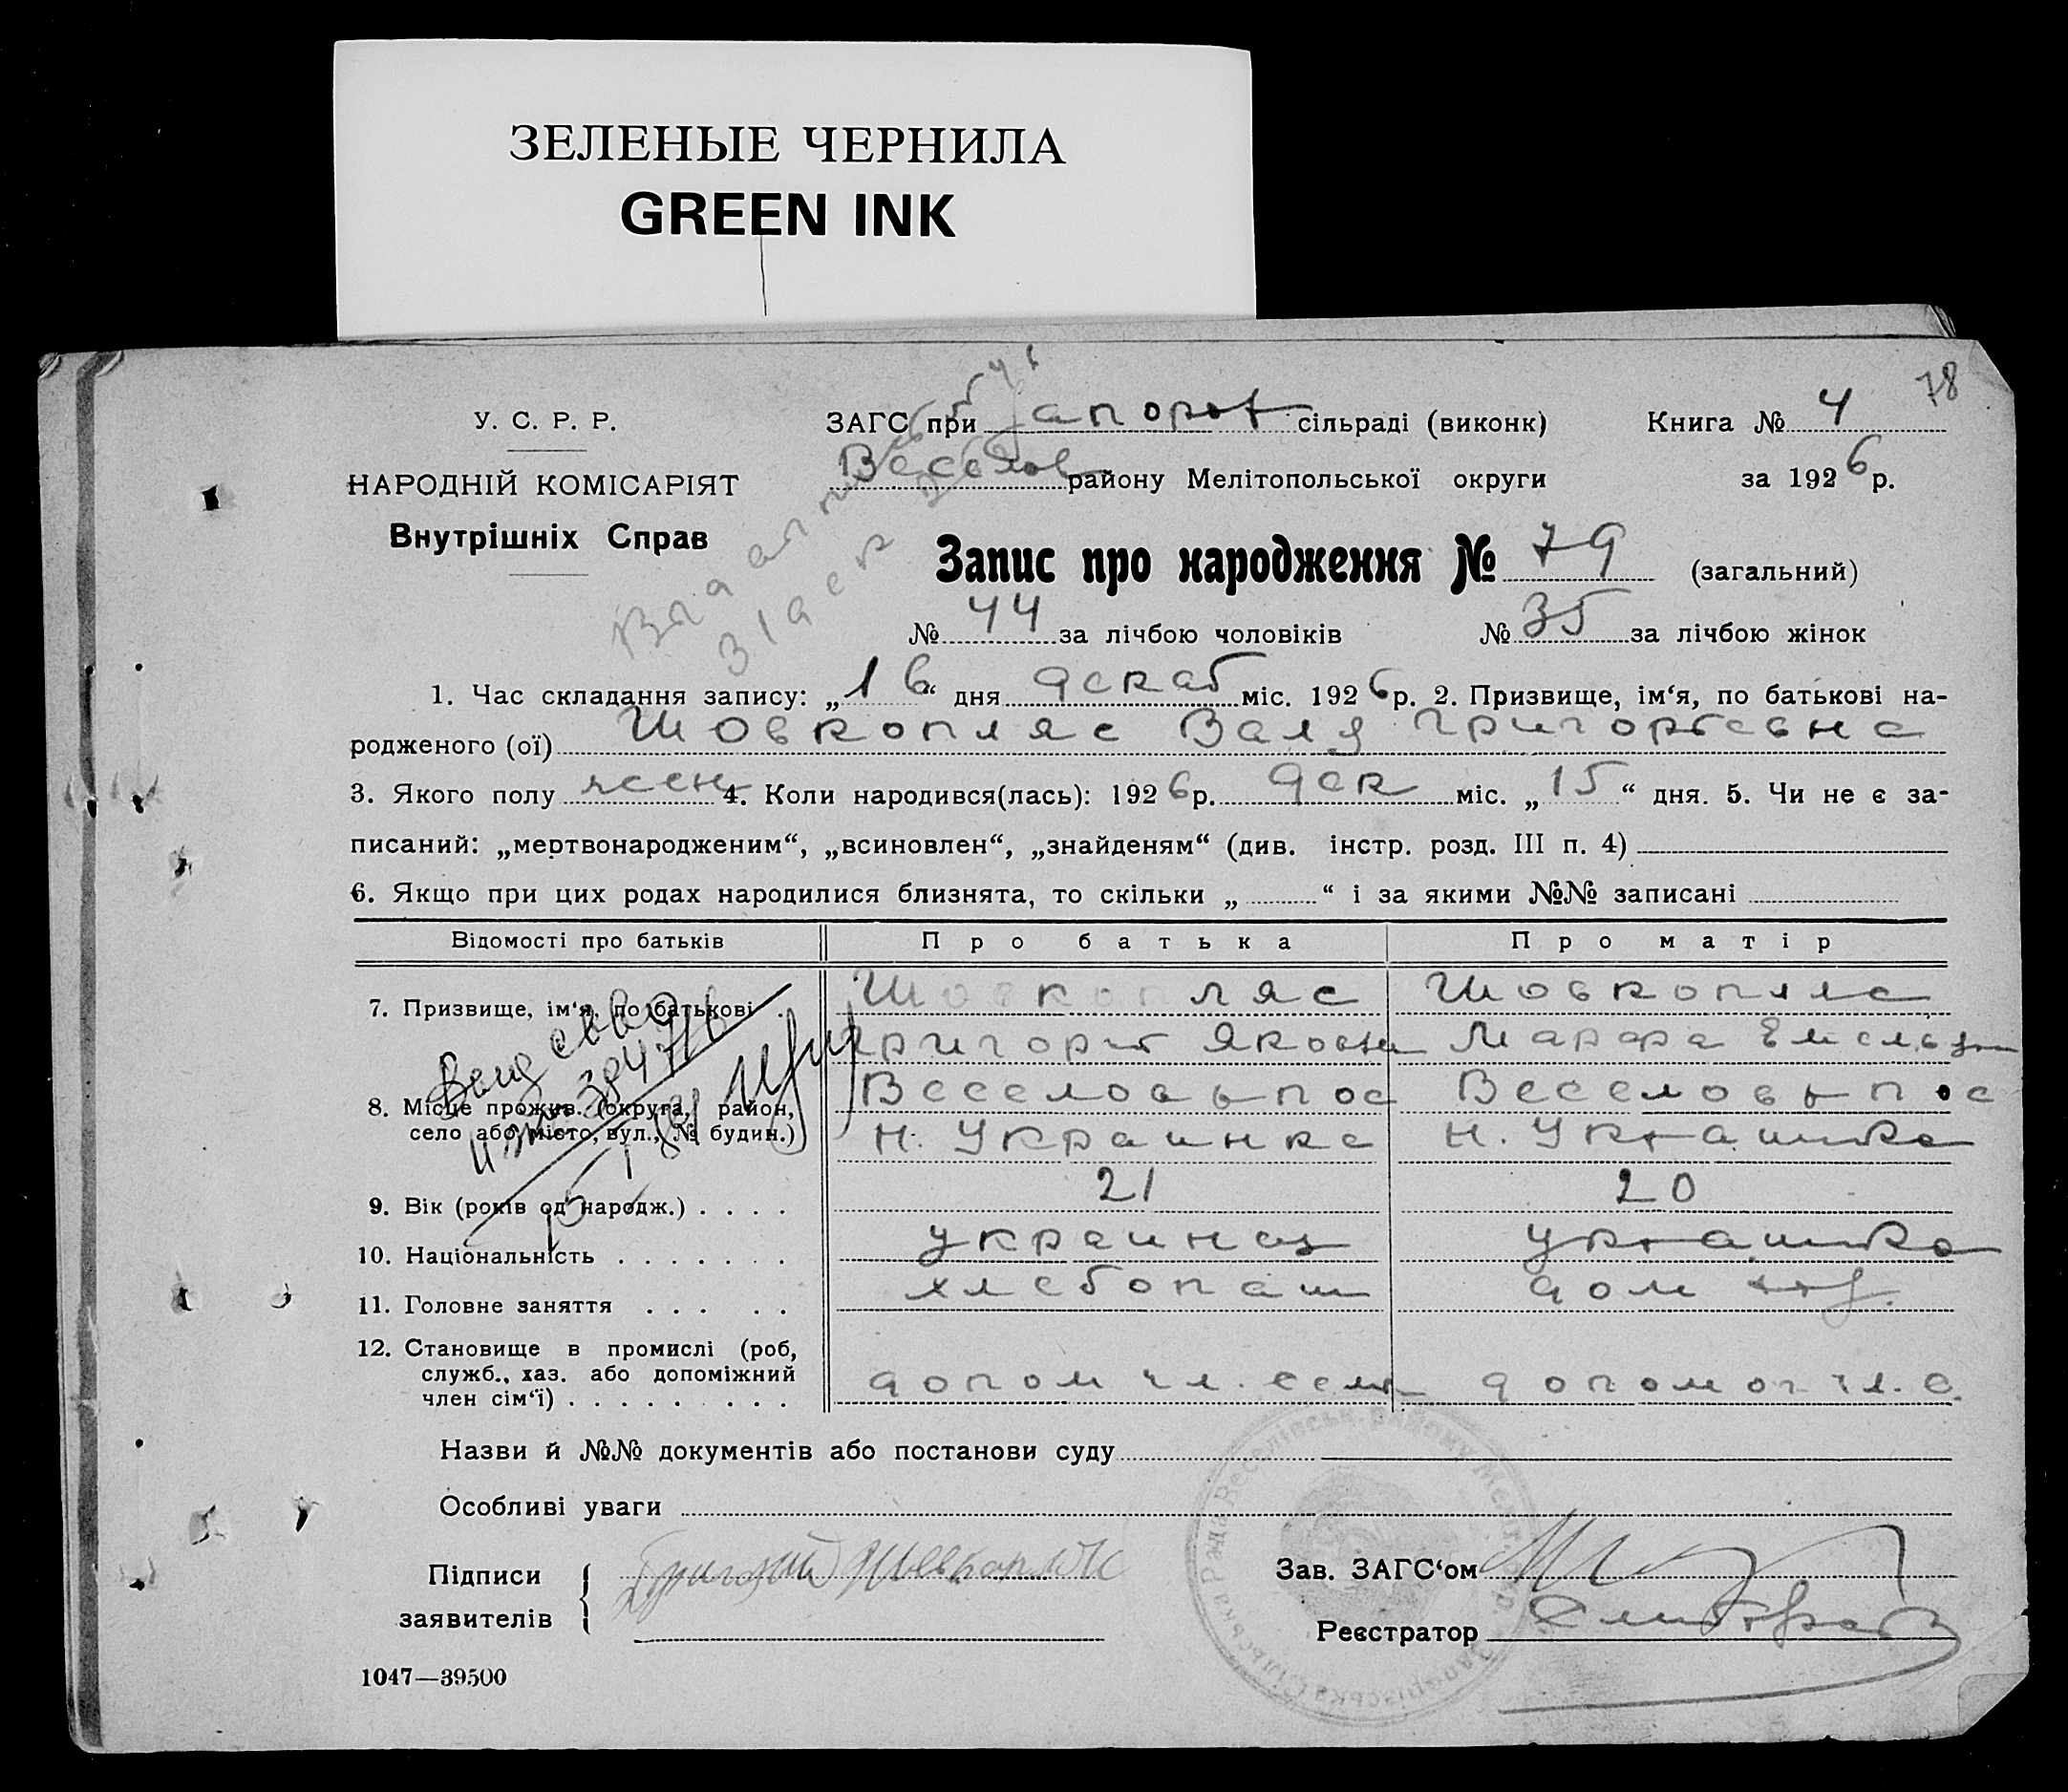 ЗЕЛЕНЫЕ ЧЕРНИЛА
GREEN INK
78
У. С. Р. Р.
НАРОДНІЙ КОМІСАРІЯТ
Внутрішніх Справ
ЗАГС при Запорож сільраді (виконк)
Веселов району Мелітопольської округи
Книга № 4
за 1926 р.
Запис про народження № 79 (загальний)
№ 44 за лічбою чоловіків № 35 за лічбою жінок
1. Час складання запису: „16“ дня декаб міс. 1926 р. 2. Призвище, ім‘я, по батькові на-
родженого (ої) Шовкопляс Валя Григорьевна
3. Якого полу жен 4. Коли народився(лась): 1926 р. дек міс. „15“ дня. 5. Чи не є за-
писаний: „мертвонародженим“, „всиновлен“, „знайденям“ (див. інстр. розд. III п. 4)
6. Якщо при цих родах народилися близнята, то скільки „ “ і за якими №№ записані
Відомості про батьків Про батька Про матір
7. Призвище, ім‘я, по батькові . Шовкопляс Шовкопляс
Григорий Яковл Марфа
8. Місце прожив. (округа, район, Веселовь пос Веселовь пос
село або місто, вул., № будин.) Н. Украинка Н. Украинка
9. Вік (років од народж.) . . . . 21 20
10. Національність . . . . . . . украинец украинка
11. Головне заняття . . . . . хлебопаш дом
12. Становище в промислі (роб,
служб., хаз. або допоміжний
член сім‘ї) . . . . . . . . . допом чл. сем допомог чл. с.
Назви й №№ документів або постанови суду
Особливі уваги
Підписи Григорий Шовкопляс
заявителів
Зав. ЗАГС‘ом
Реєстратор
1047—39500